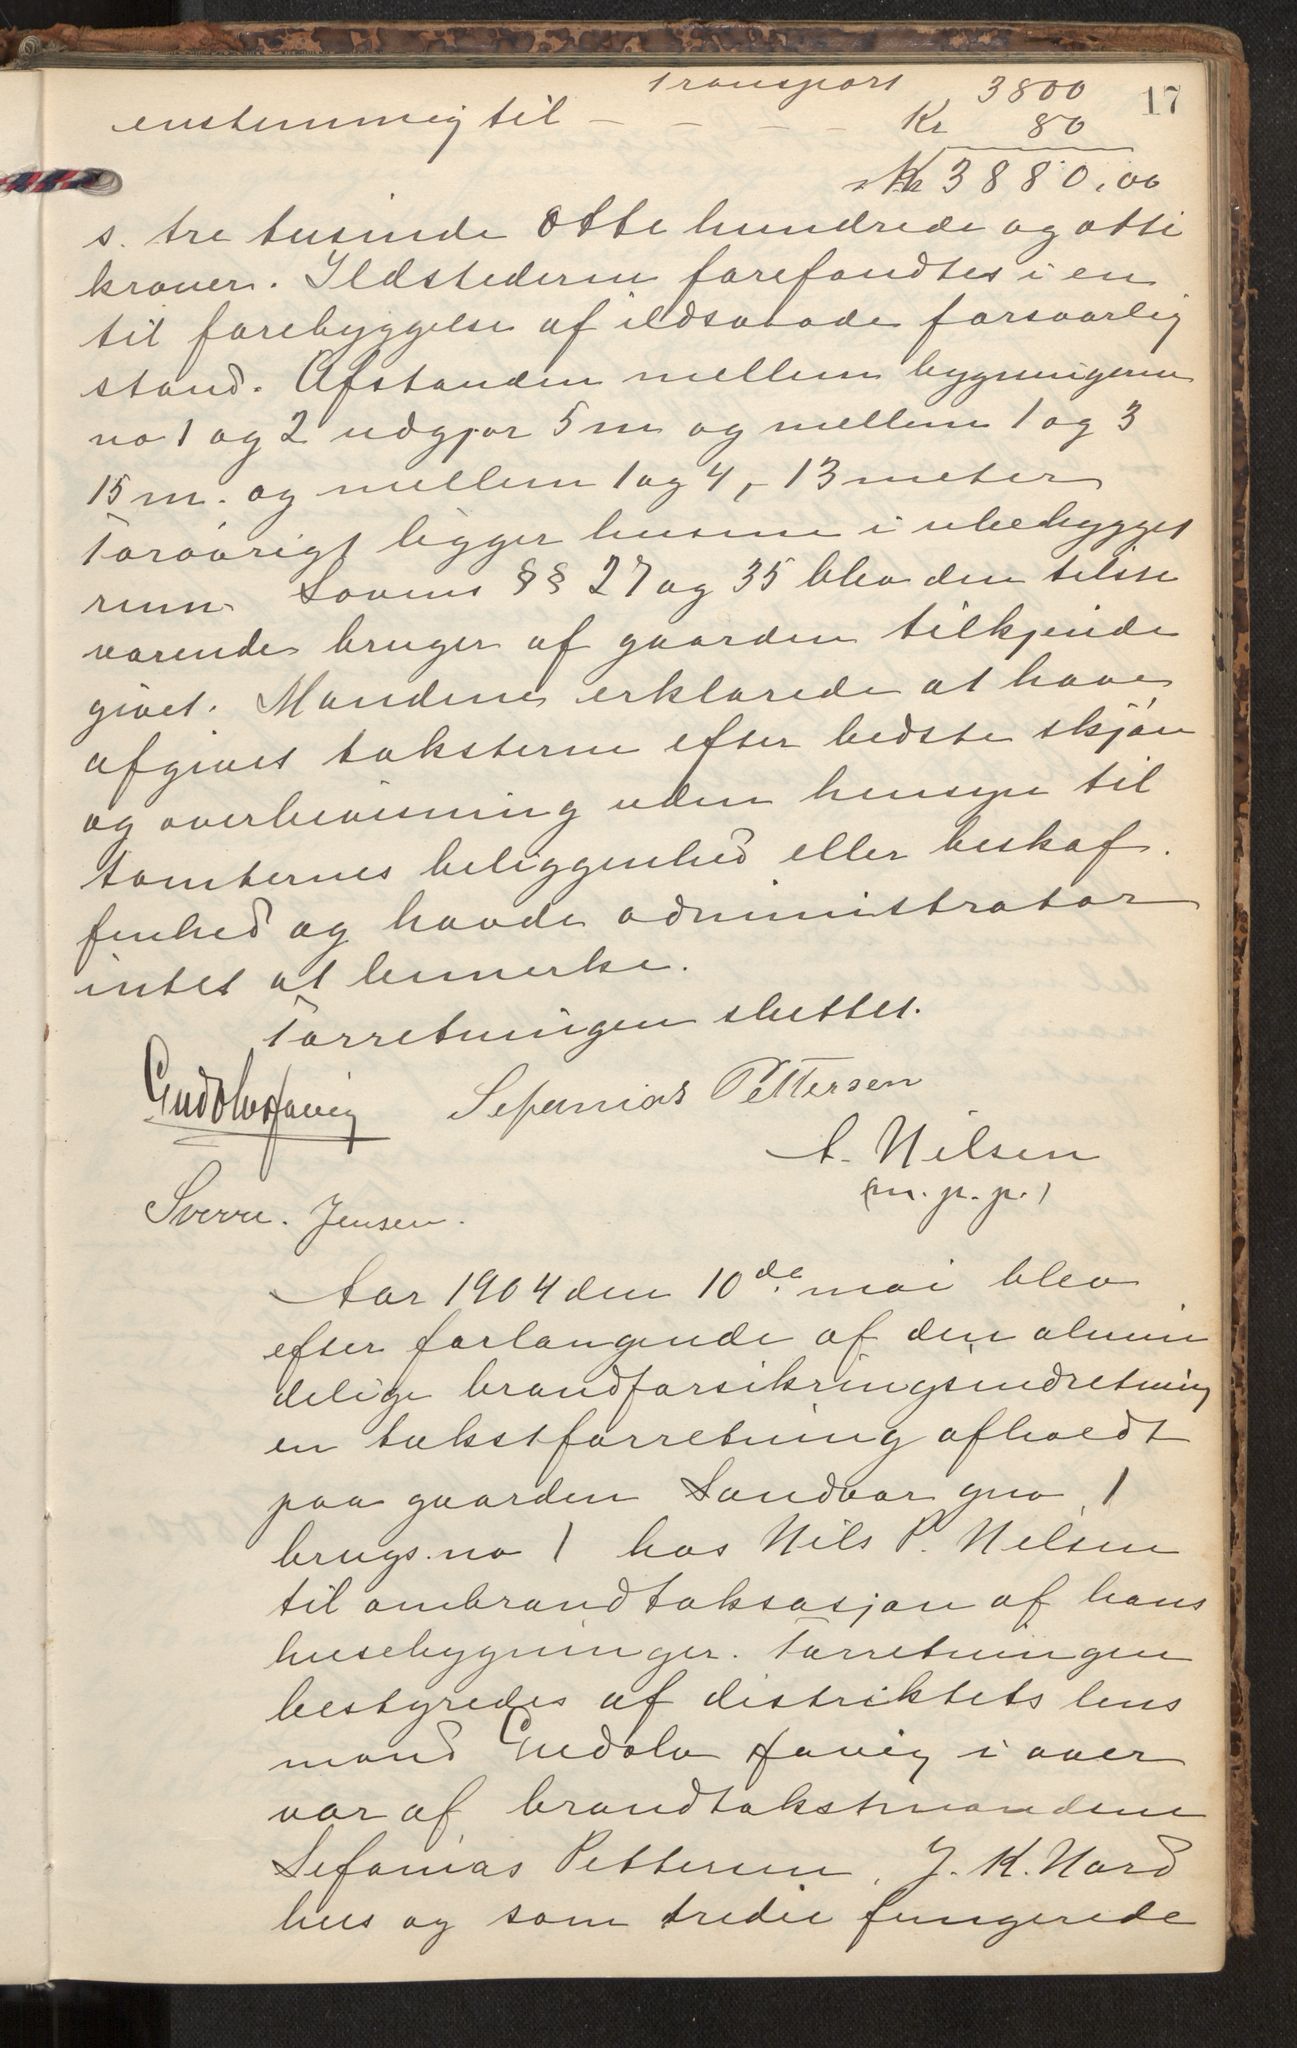 17
Transport 3800
enstemmig til - - - - Kr 80
Kr 3880,00
s. tre tusinde otte hundrede og otti
kroner. Ildstederne forefandtes i en
til forebyggelse af ildsvaade forsvarlig
stand. Afstanden mellem bygningerne
no 1 og 2 udgjør 5 m og mellem 1 og 3
15 m. og mellem 1 og 4, - 13 meter
Forøvrigt ligger husene i ubebygget
rum. Lovens §§ 27 og 35 blev den tilste
værende bruger af gaarden tilkjende
givet. Mændene erklærede at have
afgivet taksterne efter bedste skjøn
og overbevisning uden hensyn til
tomternes beliggenhed eller beskaf.
fenhed og havde administrator
intet at bemerke.
Forretningen sluttet.
Gudolv Havig Sefanias Pettersen
A. Nilsen
(m. p. p.)
Sverre. Jensen.
Aar 1904 den 10de mai blev
efter forlangende af den almin
delige brandforsikringsindretning
en takstforretning afholdt
paa gaarden Sandvær gno 1
brugs.no 1 hos Nils P. Nilsen
til ombrandtaksasjon af hans
husebygninger. Forretningen
bestyredes af distriktets lens
mand Gudolv Havig i over
vær af brandtakstmændene
Sefanias Pettersen, J. K. Nord
hus og som tredie fungerede